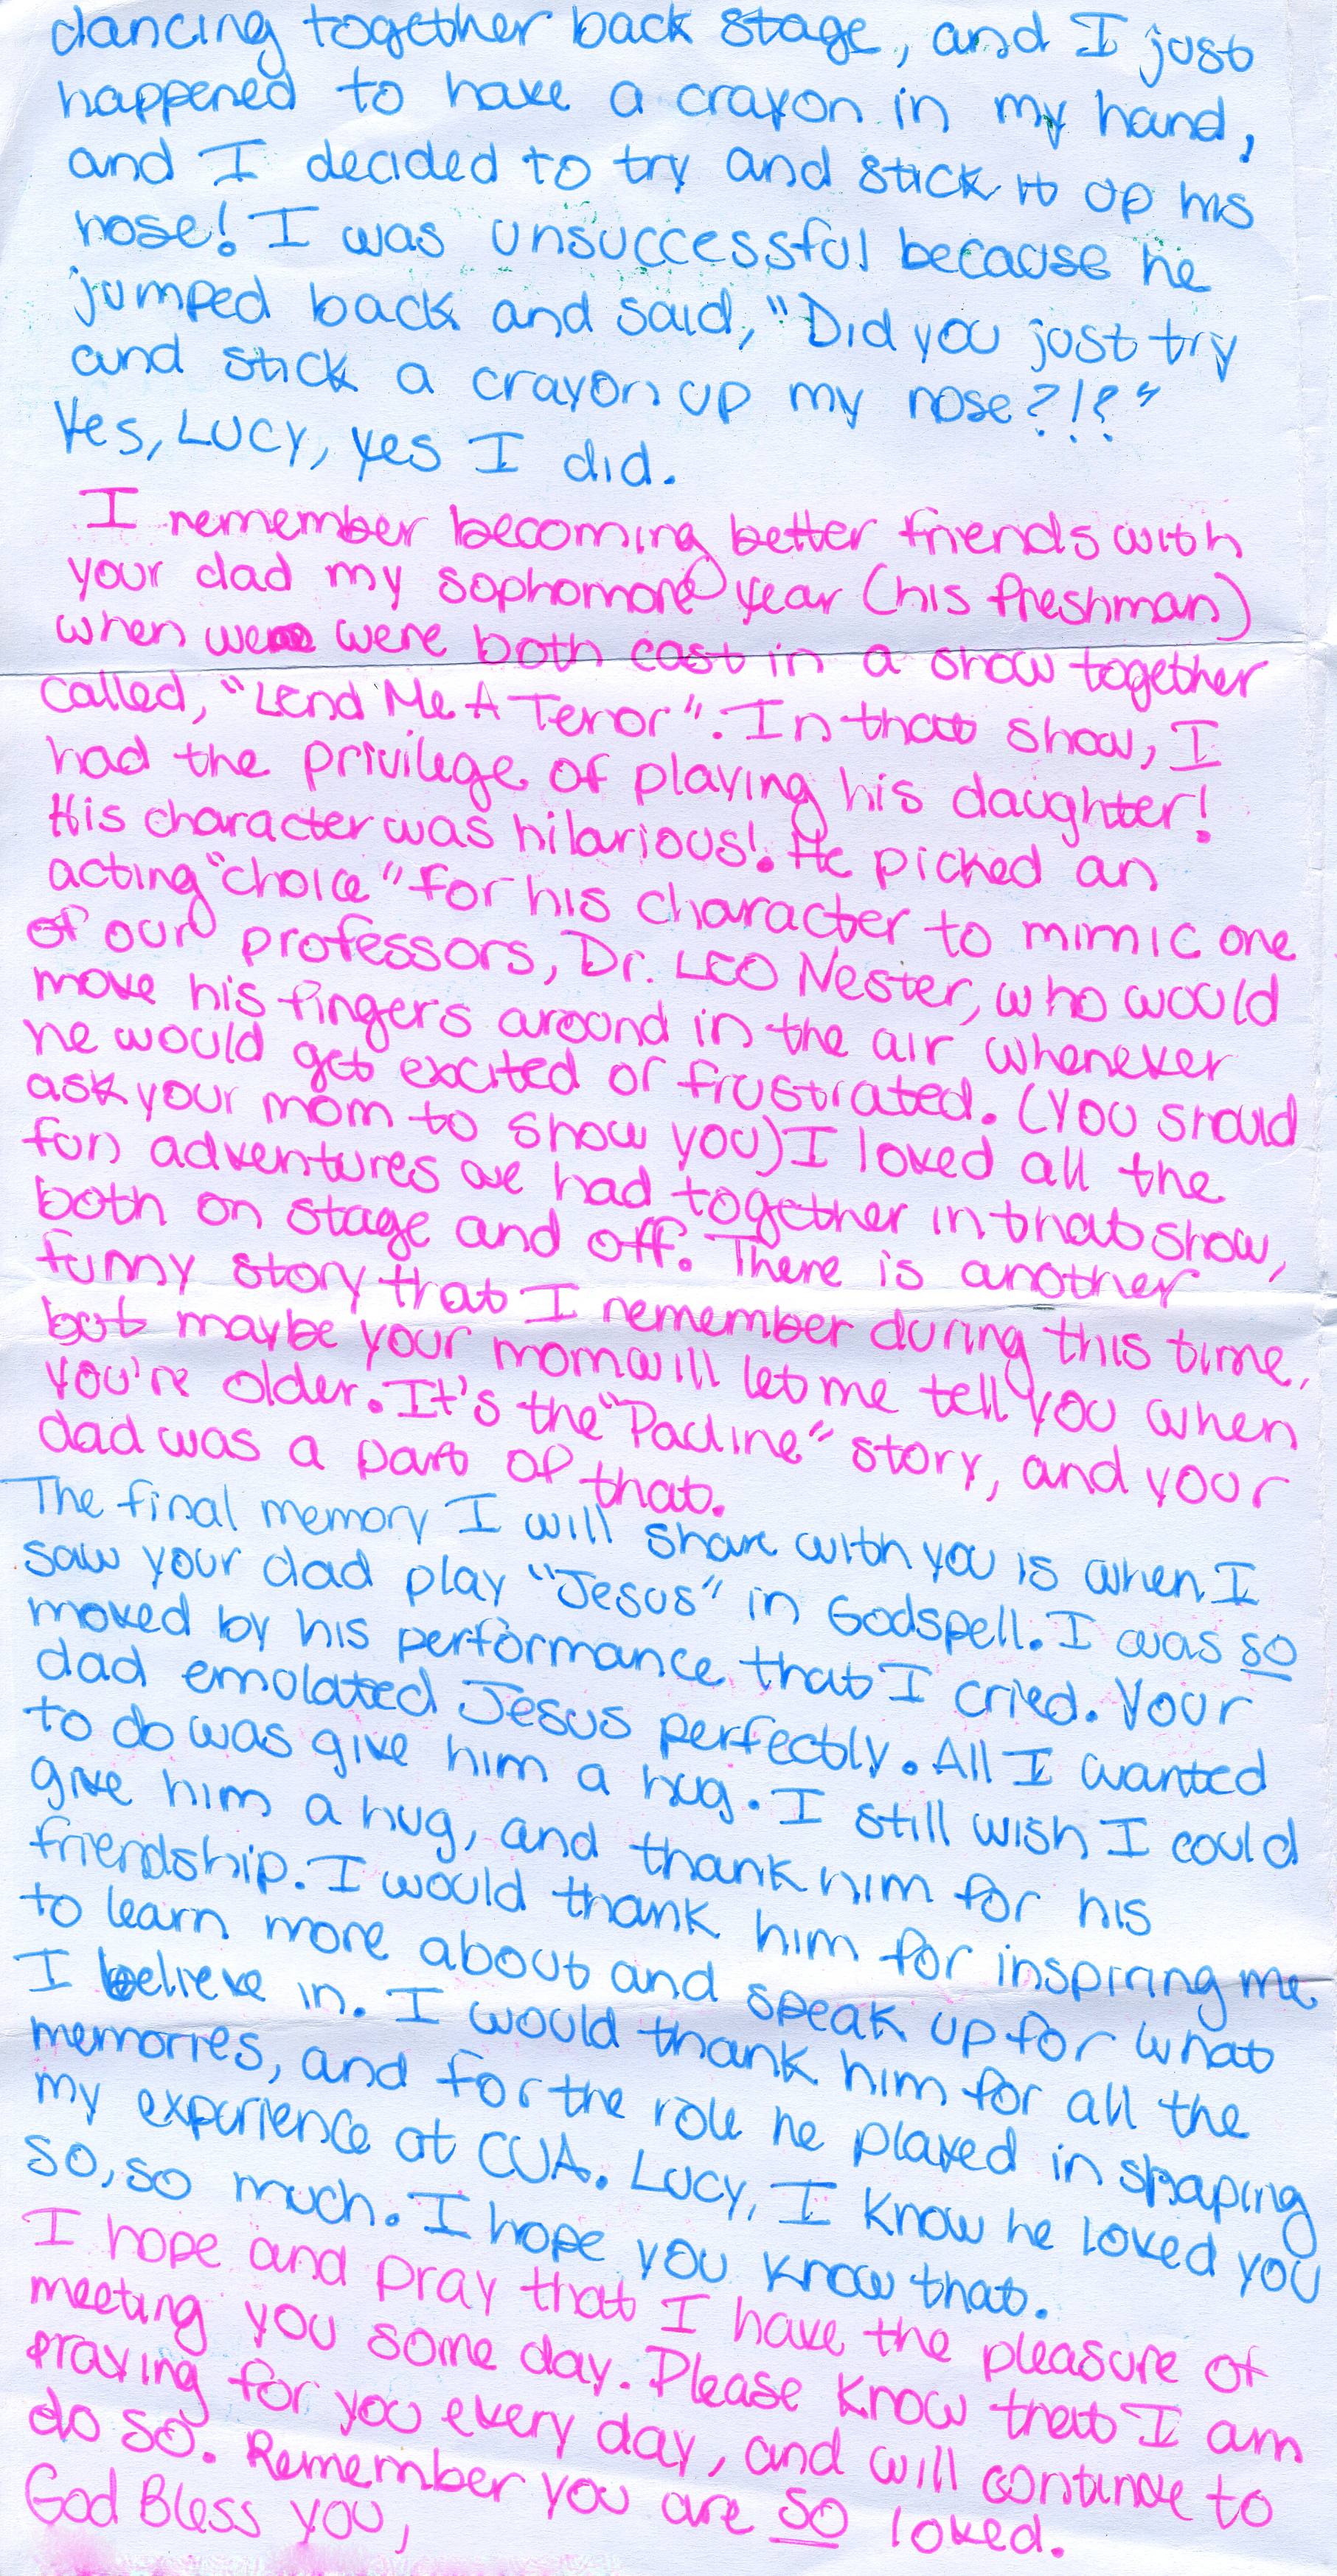 dancing together back stage, and I just
happened to have a crayon in my hand,
and I decided to try and stick it up his
nose! I was unsuccessful because he
jumped back and said, "Did you just try
and stick a crayon up my nose?!?"
Yes, Lucy, yes I did.
I remember becoming better friends with
your dad my sophomore year (his freshman)
when we were both cast in a show together
called, "Lend Me A Tenor". In that show, I
had the privilege of playing his daughter!
His character was hilarious! He picked an
acting "choice" for his character to mimic one
of our professors, Dr. Leo Nester, who would
move his fingers around in the air whenever
he would get excited or frustrated. (You should
ask your mom to show you) I loved all the
fun adventures we had together in that show,
both on stage and off. There is another
funny story that I remember during this time,
but maybe your mom will let me tell you when
you're older. It's the "Pauline" story, and your
dad was a part of that.
The final memory I will share with you is when I
saw your dad play "Jesus" in Godspell. I was so
moved by his performance that I cried. Your
dad emulated Jesus perfectly. All I wanted
to do was give him a hug. I still wish I could
give him a hug, and thank him for his
friendship. I would thank him for inspiring me
to learn more about and speak up for what
I believe in. I would thank him for all the
memories, and for the role he played in shaping
my experience at CUA. Lucy, I know he loved you
so, so much. I hope you know that.
I hope and pray that I have the pleasure of
meeting you some day. Please know that I am
praying for you every day, and will continue to
do so. Remember you are so loved.
God Bless you,